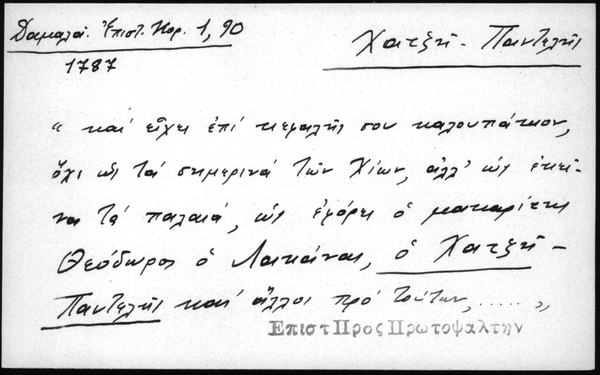 Δαμαλά. Ἐπιστ. Κορ. 1, 90
Χατζῆ - Παντελῆς
1787
" καί εἶχε ἐπί κεφαλῆς σου καλουπάκιον,
ὄχι ὡς τά σημερινά τῶν Χίων, ἀλλ' ὡς ἐκεῖ-
να τά παλαιά, ὡς ἐφόρει ὁ μακαρίτης
Θεόδωρος ὁ Λακάνας, ὁ Χατζῆ -
Παντελῆς καί ἄλλοι πρό τούτων, ..... "
Επιστ Προς Πρωτοψαλτην